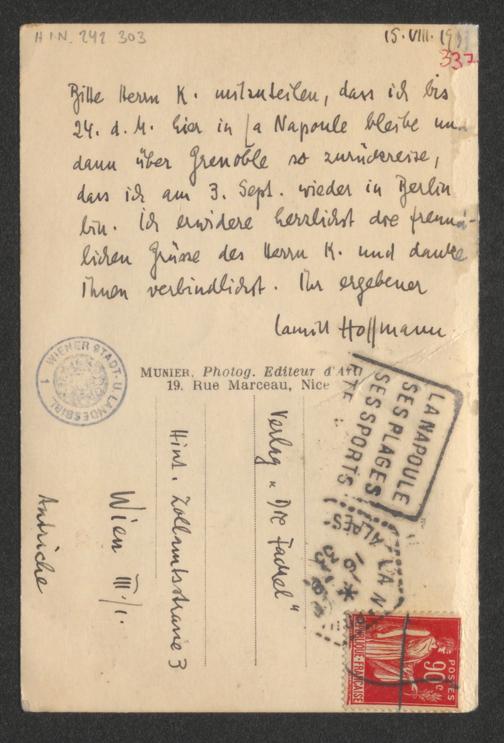 H.I.N. 242 303
15. VIII. 19
337
Bitte Herrn K. mitzuteilen, dass ich bis
24. d. M. hier in La Napoule bleibe und
dann über Grenoble so zurückreise,
dass ich am 3. Sept. wieder in Berlin
bin. Ich erwidere herzlichst die freund-
lichen Grüsse des Herrn K. und danke
Ihnen verbindlichst. Ihr ergebener
Camill Hoffmann.
WIENER STADT. U. LANDESBIBL.
1
MUNIER, Photog. Editeur d'Art
19. Rue Marceau, Nice
LA NAPOULE
SES PLAGES
SES SPORTS
Verlag „Die Fackel"
Hint. Zollamtsstrasse 3
Wien III/1.
Autriche
LA NAP
ALPES
POSTES
90c
RÉPUBLIQUE FRANÇAISE